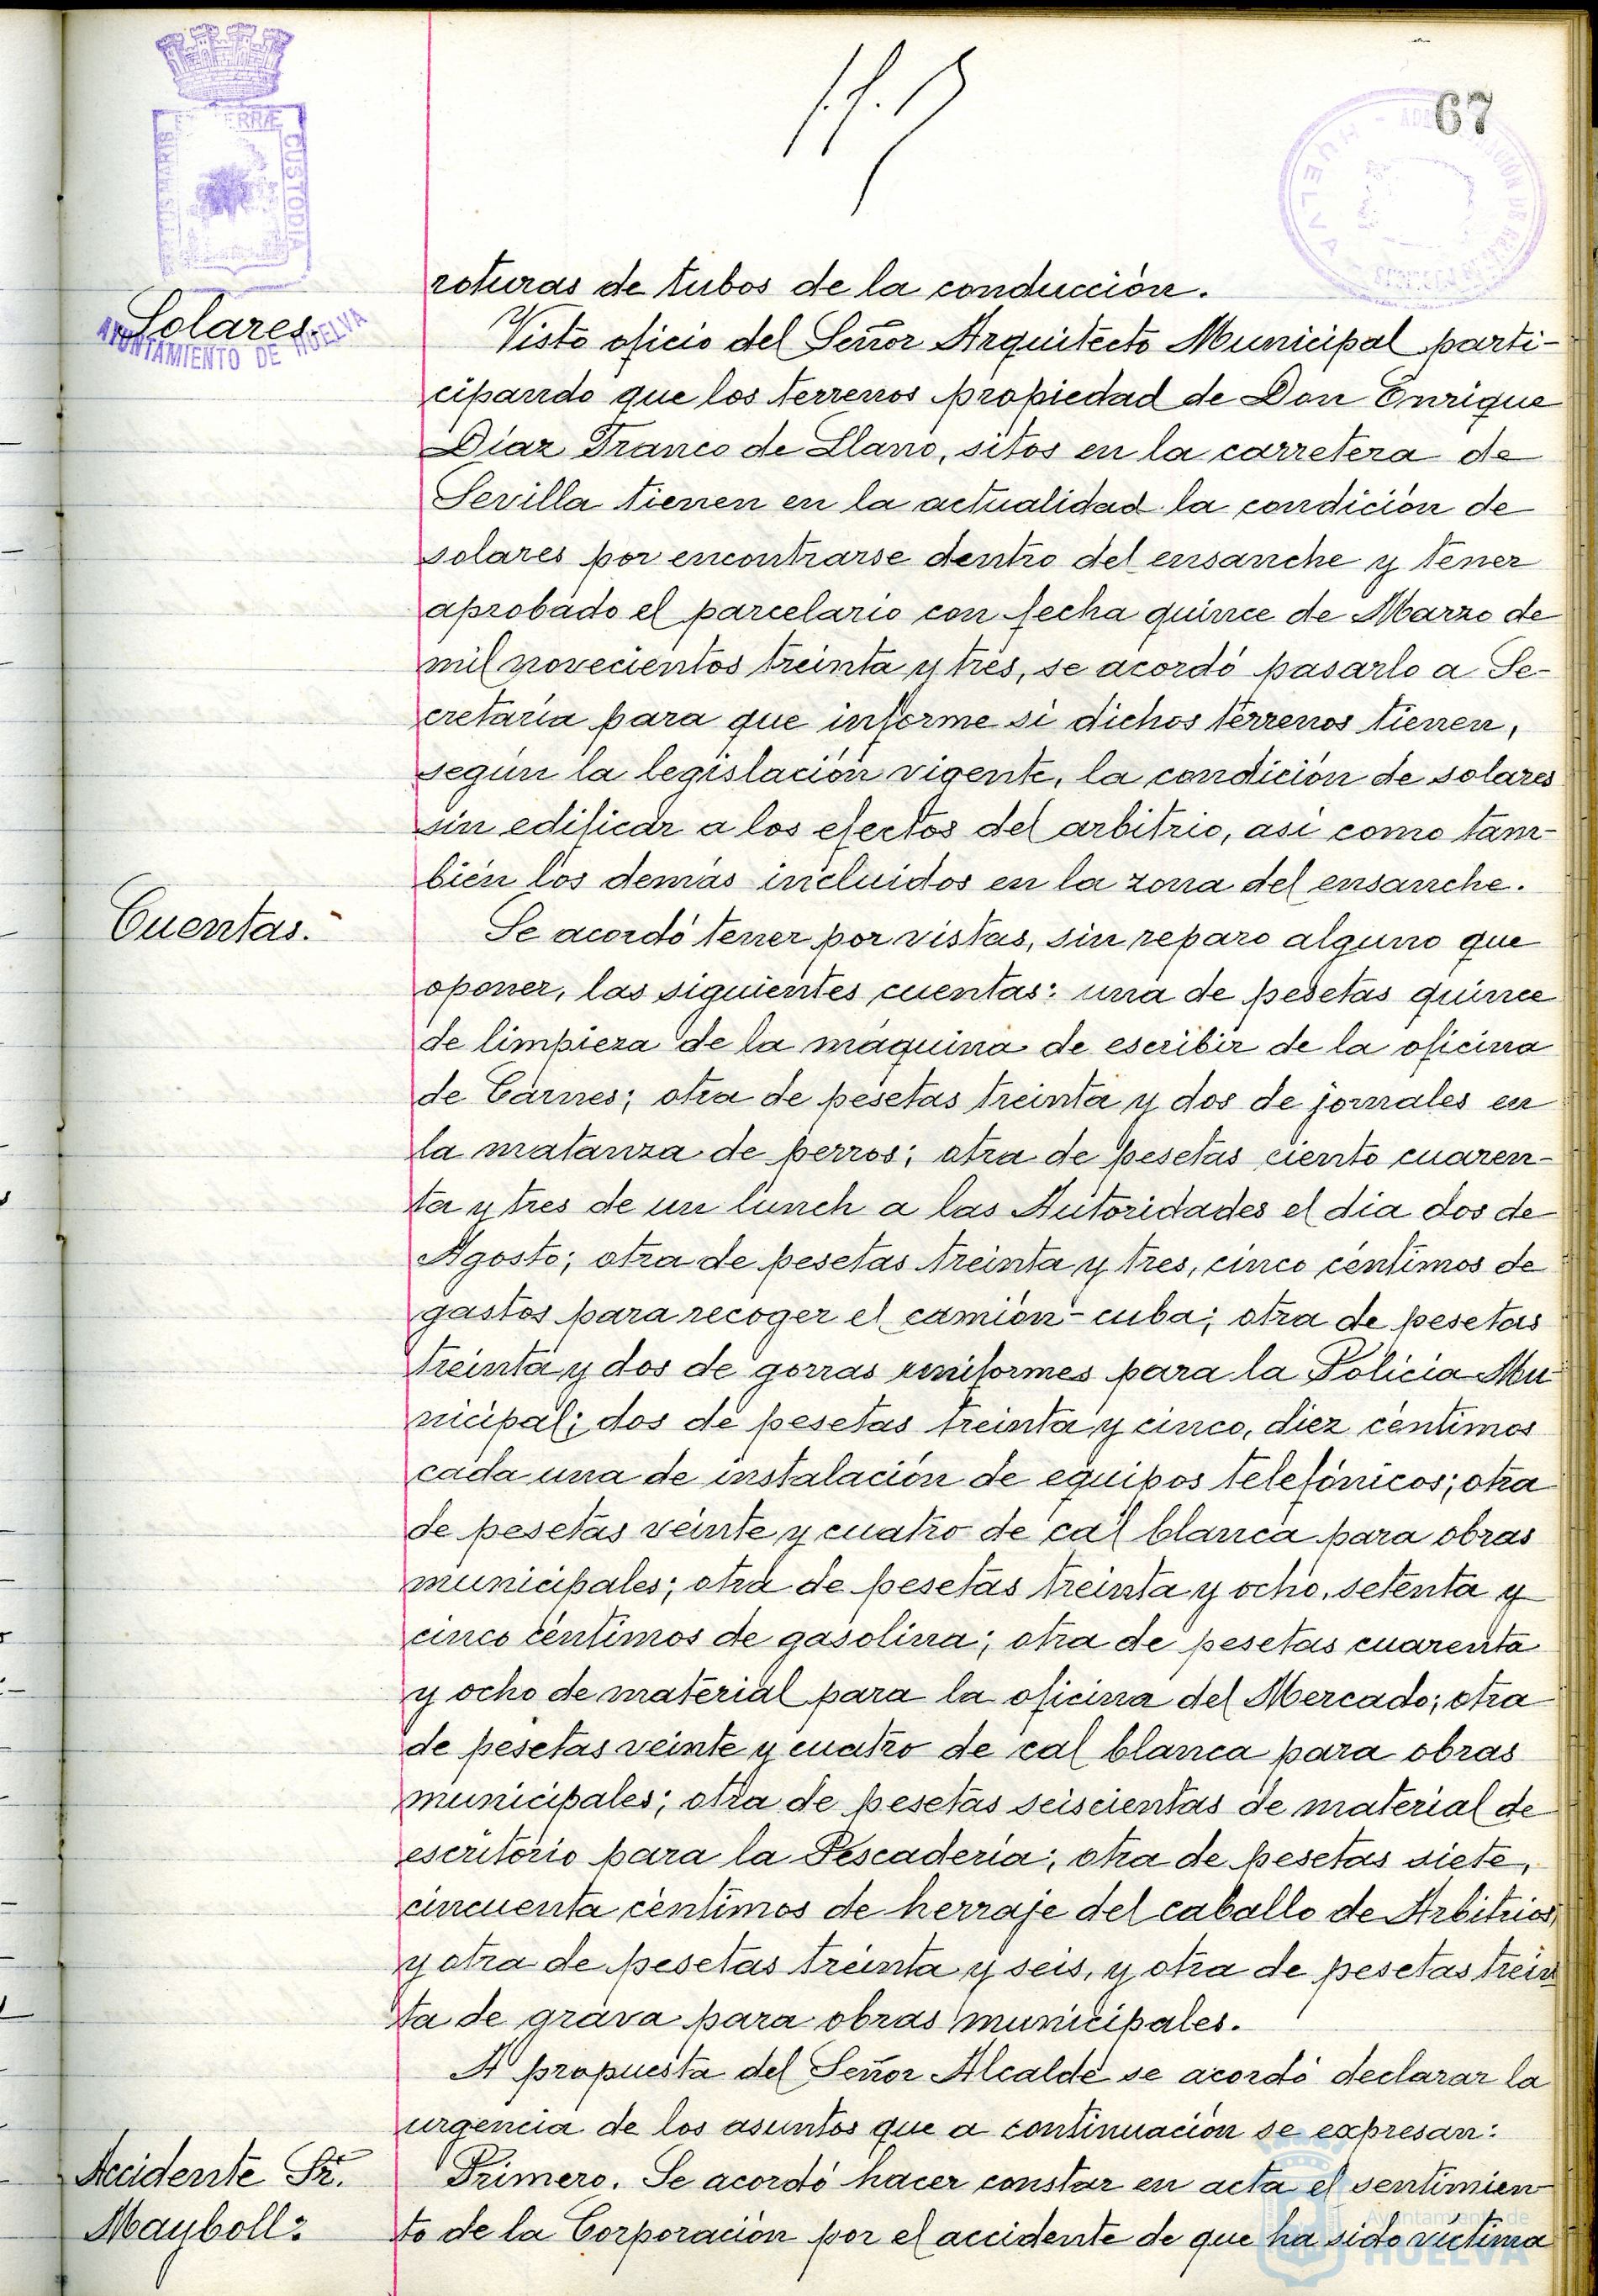 67
TERRÆ
CUSTODIA
AYUNTAMIENTO DE HUELVA
HUELVA
Solares.
roturas de tubos de la conducción.
Visto oficio del Señor Arquitecto Municipal parti-
cipando que los terrenos propiedad de Don Enrique
Díaz Franco de Llano, sitos en la carretera de
Sevilla tienen en la actualidad la condición de
solares por encontrarse dentro del ensanche y tener
aprobado el parcelario con fecha quince de Marzo de
mil novecientos treinta y tres, se acordó pasarlo a Se-
cretaría para que informe si dichos terrenos tienen,
según la legislación vigente, la condición de solares
sin edificar a los efectos del arbitrio, asi como tam-
bién los demás incluidos en la zona del ensanche.
Cuentas.
Se acordó tener por vistas, sin reparo alguno que
oponer, las siguientes cuentas: una de pesetas quince
de limpieza de la máquina de escribir de la oficina
de Carnes; otra de pesetas treinta y dos de jornales en
la matanza de perros; otra de pesetas ciento cuaren-
ta y tres de un lunch a las Autoridades el día dos de
Agosto; otra de pesetas treinta y tres, cinco céntimos de
gastos para recoger el camión-cuba; otra de pesetas
treinta y dos de gorras uniformes para la Policía Mu-
nicipal; dos de pesetas treinta y cinco, diez céntimos
cada una de instalación de equipos telefónicos; otra
de pesetas veinte y cuatro de cal blanca para obras
municipales; otra de pesetas treinta y ocho, setenta y
cinco céntimos de gasolina; otra de pesetas cuarenta
y ocho de material para la oficina del Mercado; otra
de pesetas veinte y cuatro de cal blanca para obras
municipales; otra de pesetas seiscientas de material de
escritorio para la Pescadería; otra de pesetas siete,
cincuenta céntimos de herraje del caballo de Arbitrios,
y otra de pesetas treinta y seis, y otra de pesetas trein
ta de grava para obras municipales.
A propuesta del Señor Alcalde se acordó declarar la
urgencia de los asuntos que a continuación se expresan:
Accidente Sr.
Mayboll:
Primero. Se acordó hacer constar en acta el sentimien
to de la Corporación por el accidente de que ha sido víctima
Ayuntamiento de
HUELVA